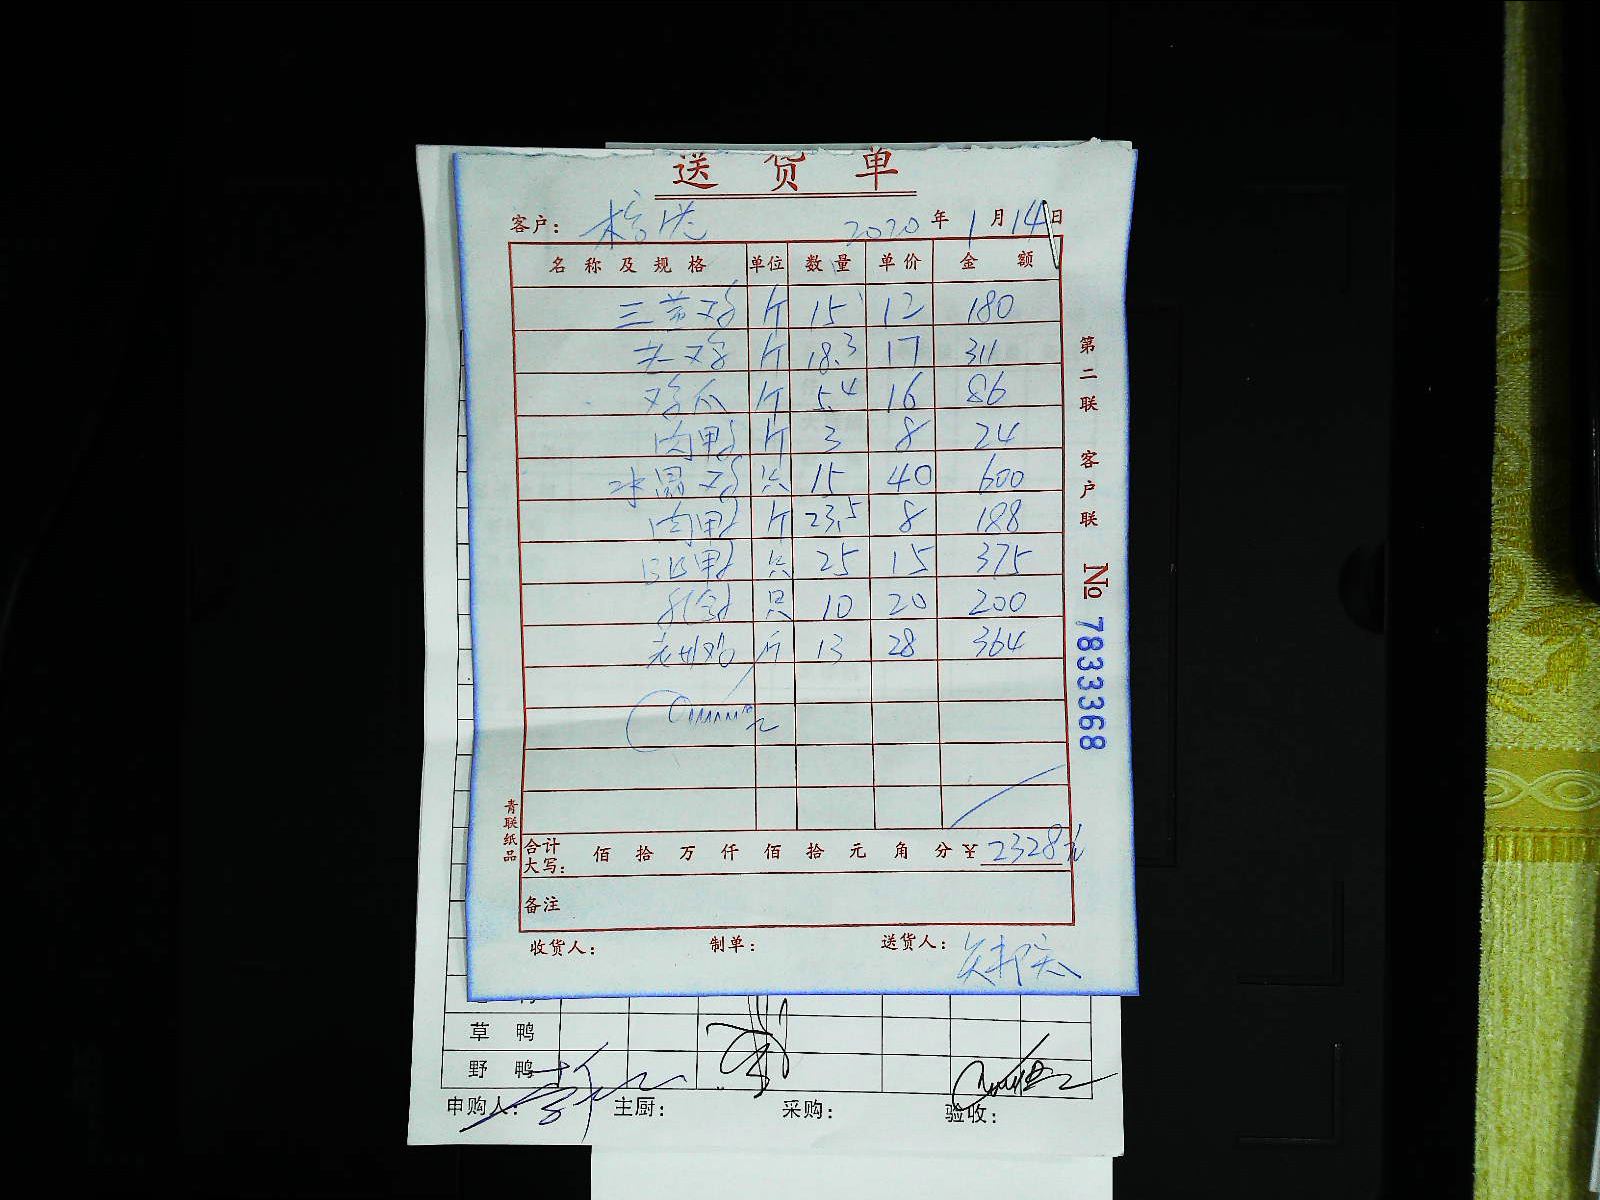 送 货 单
客户： 2020 年 1 月 14 日
名 称 及 规 格 单位 数 量 单 价 金 额
三黄鸡 斤 15 12 180
老鸡 斤 18.3 17 311
鸡爪 斤 5.4 16 86
肉鸭 斤 3 8 24
水晶鸡 只 15 40 600
肉鸭 斤 23.5 8 188
鸭 只 25 15 375
乳鸽 只 10 20 200
鸡 斤 13 28 364
合计
大写： 佰 拾 万 仟 佰 拾 元 角 分 ¥ 2328元
备注
收货人： 制单： 送货人：
第二联 客户联
No 7833368
青联纸品
草 鸭
野 鸭
申购人： 主厨： 采购： 验收：